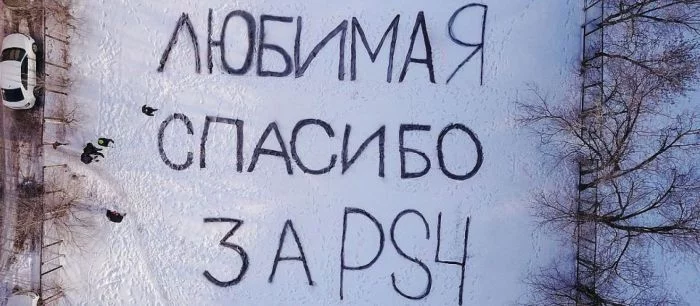 ЛЮБИМАЯ
СПАСИБО
ЗА PS4